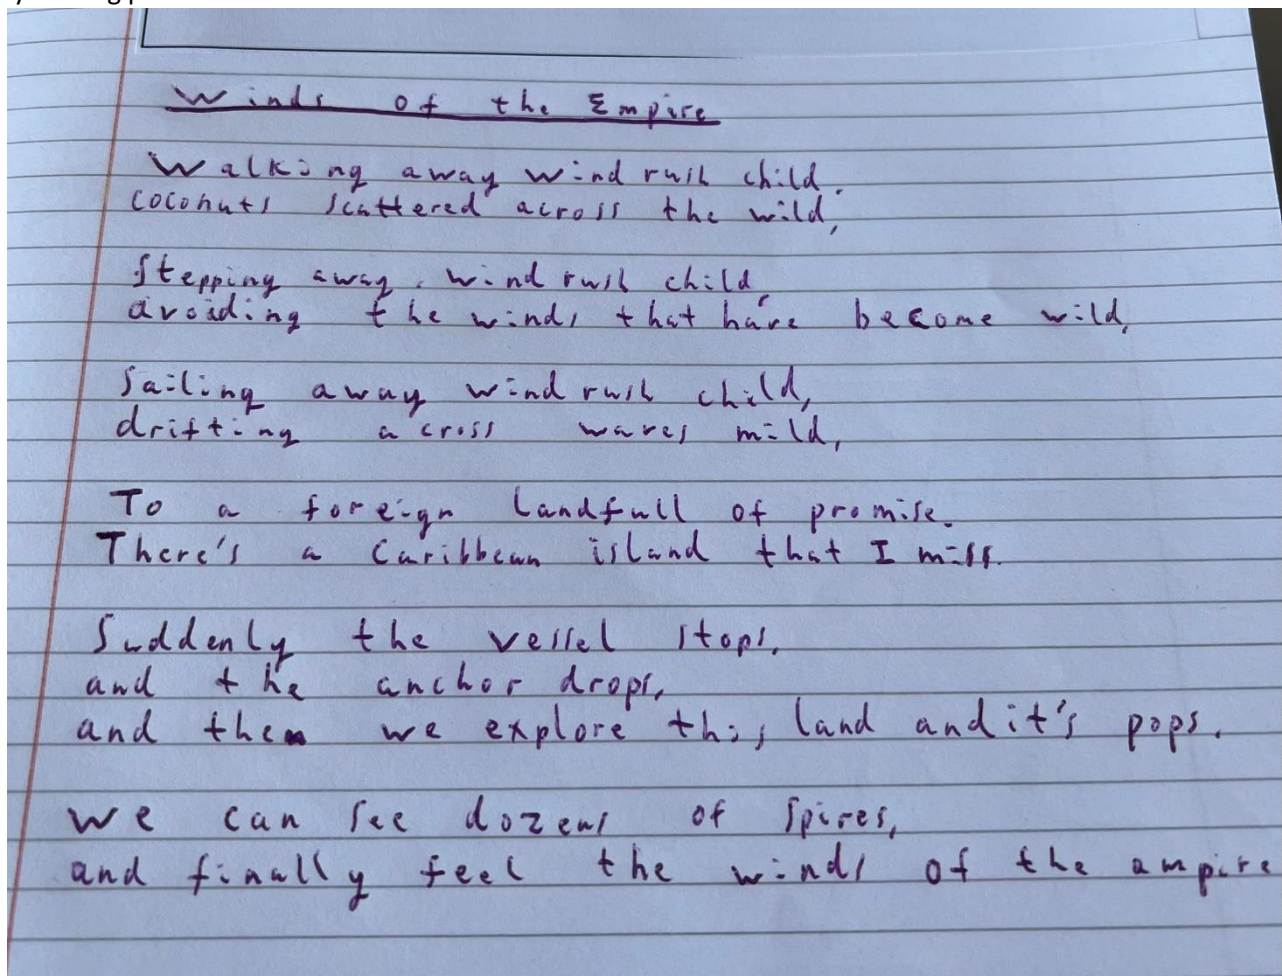 Winds of the Empire
Walking away windrush child.
coconuts scattered across the wild,
Stepping away, windrush child,
avoiding the winds that have become wild,
Sailing away windrush child,
drifting across waves mild,
To a foreign landfull of promise.
There's a Caribbean island that I miss.
Suddenly the vessel stops,
and the anchor drops,
and then we explore this land and it's pops.
we can see dozens of spires,
and finally feel the winds of the ampire